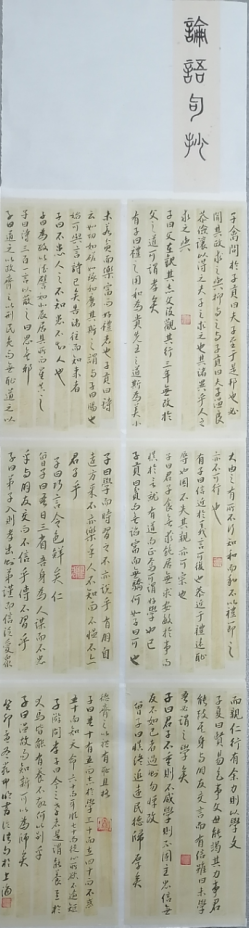 論語句抄
子禽問於子貢曰夫子至於是邦也必
聞其政求之與抑與之與子貢曰夫子溫良
恭儉讓以得之夫子之求之也其諸異乎人之
求之與
子曰父在觀其志父沒觀其行三年無改於
父之道可謂孝矣
有子曰禮之用和為貴先王之道斯為美小
未若貧而樂富而好禮者也子貢曰詩
云如切如磋如琢如磨其斯之謂與子曰賜也
始可與言詩已矣告諸往而知來者
子曰不患人之不己知患不知人也
子曰為政以德譬如北辰居其所而眾星共之
子曰詩三百一言以蔽之曰思無邪
子曰道之以政齊之以刑民免而無恥道之以
大由之有所不行知和而和不以禮節之
亦不可行也
有子曰信近於義言可復也恭近於禮遠恥
辱也因不失其親亦可宗也
子曰君子食無求飽居無求安敏於事而
慎於言就有道而正焉可謂好學也已
子貢曰貧而無諂富而無驕何如子曰可也
子曰學而時習之不亦說乎有朋自
遠方來不亦樂乎人不知而不慍不亦
君子乎
子曰巧言令色鮮矣仁
曾子曰吾日三省吾身為人謀而不忠
乎與朋友交而不信乎傳不習乎
子曰弟子入則孝出則弟謹而信汎愛眾
而親仁行有餘力則以學文
子夏曰賢賢易色事父母能竭其力事君
能致其身與朋友交言而有信雖曰未學
吾必謂之學矣
子曰君子不重則不威學則不固主忠信無
友不如己者過則勿憚改
曾子曰慎終追遠民德歸厚矣
德齊之以禮有恥且格
子曰吾十有五而志於學三十而立四十而不惑
五十而知天命六十而耳順七十而從心所欲不踰矩
子游問孝子曰今之孝者是謂能養至於
犬馬皆能有養不敬何以別乎
子曰溫故而知新可以為師矣
癸卯 於上海